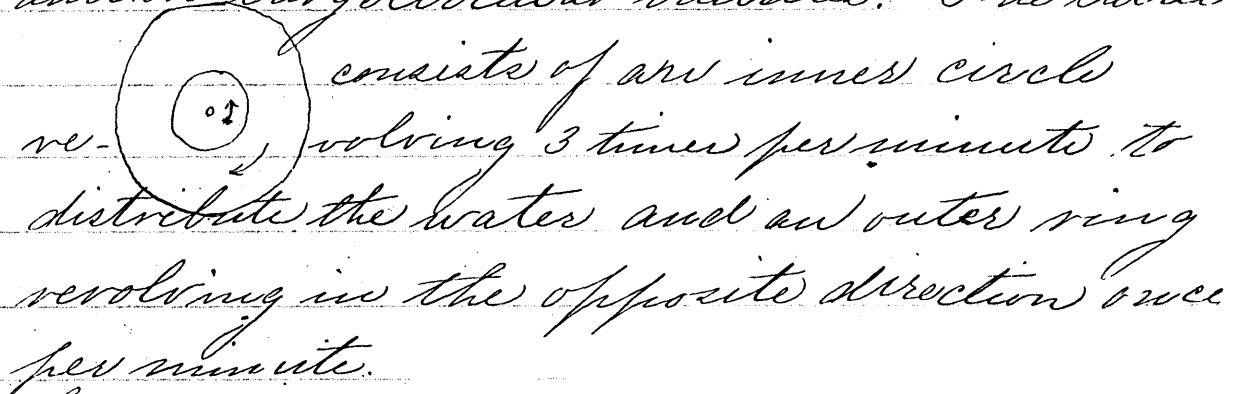 consists of an inner circle
re- volving 3 times per minute to
distribute the water and an outer ring
revolving in the opposite direction once
per minute.